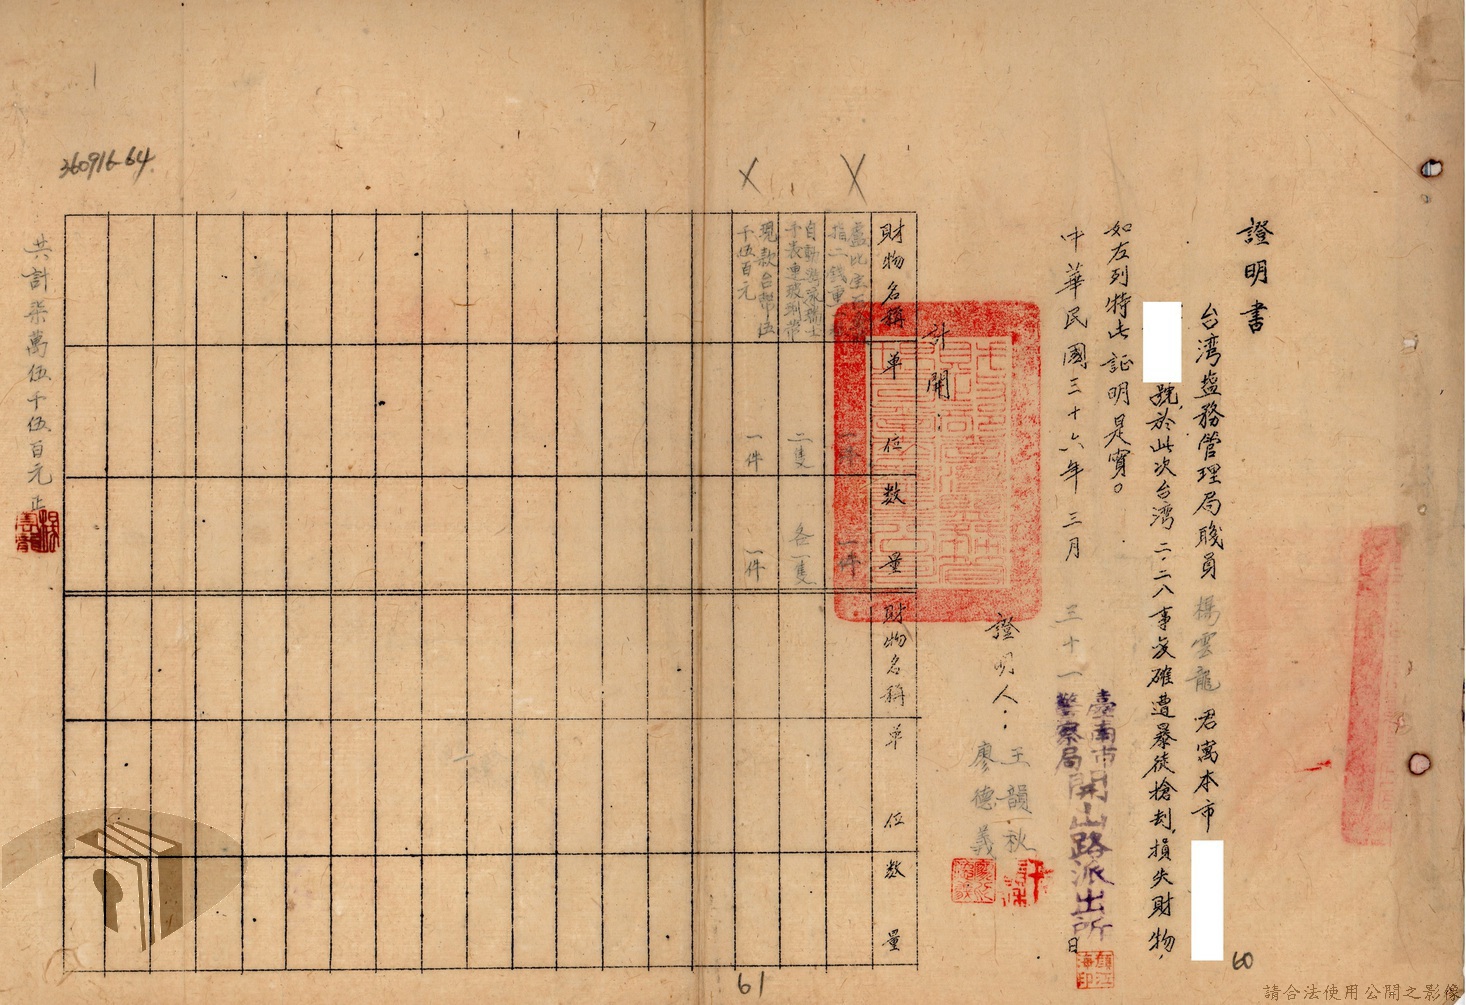 證明書
台湾塩務管理局職員楊雲龍君寓本市
號，於此次台湾二·二八事变確遭暴徒搶刼，損失財物，
如左列特此証明是實。
中華民國三十六年三月三十一日
臺南市
警察局
開山路派出所
證明人：王韻秋
廖德義
計開：
財物名稱
單位
数量
財物名稱
單位
数量
指二錢重
一件
手表連玻利帶
二隻
各一隻
現款台幣伍
千伍百元
一件
一件
共計柒萬伍千伍百元正
360916-64
60
61
請合法使用公開之影像